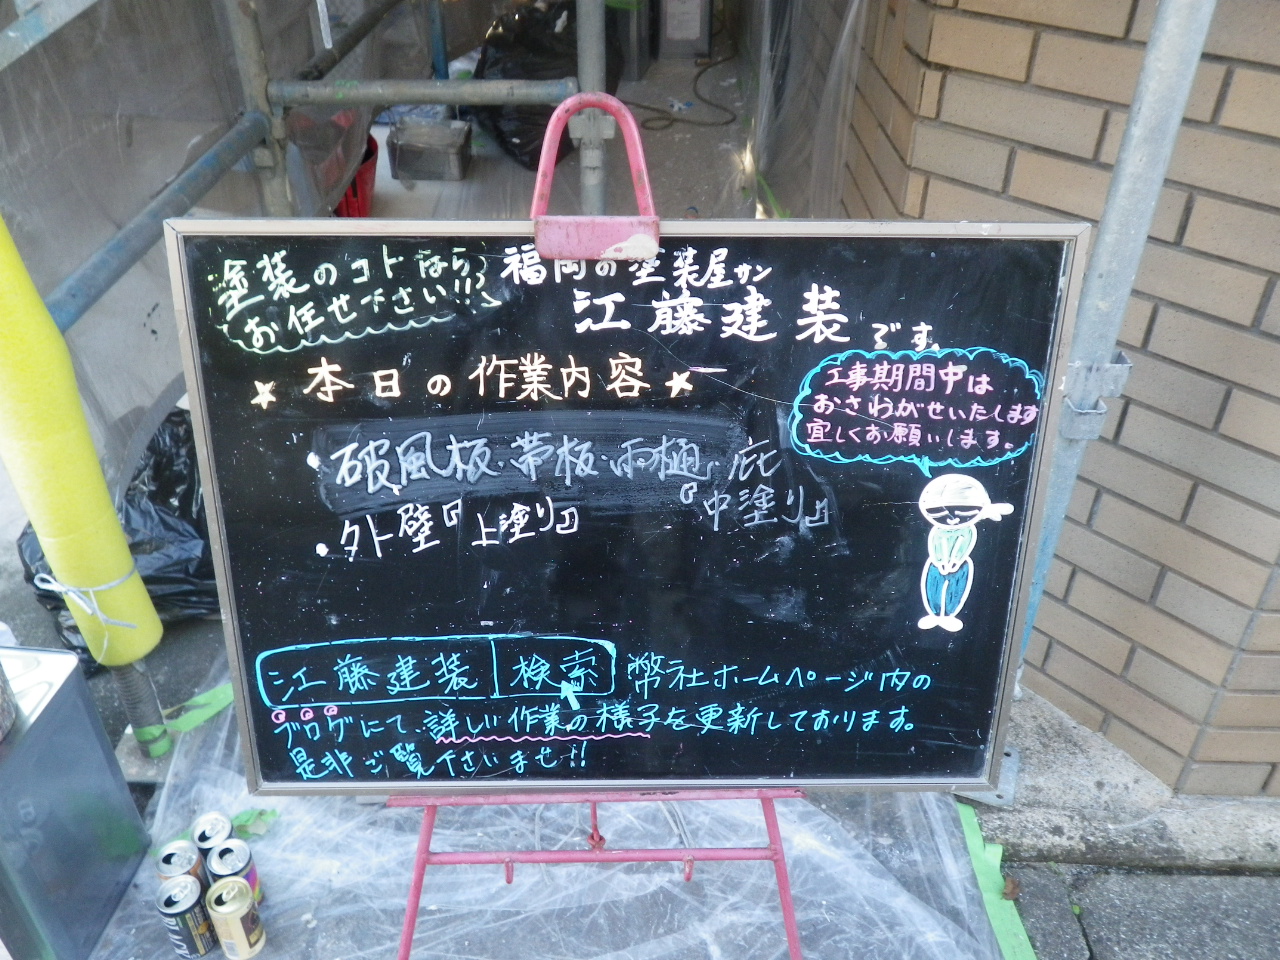 塗装のコトなら
お任せ下さい!!
福岡の塗装屋サン
江藤建装です。
★本日の作業内容★
工事期間中は
おさわがせいたします
宜しくお願いします。
・破風板・帯板・雨樋・庇
『中塗り』
・外壁『上塗り』
江藤建装 検索 弊社ホームページ内の
ブログにて、詳しい作業の様子を更新しております。
是非ご覧下さいませ!!